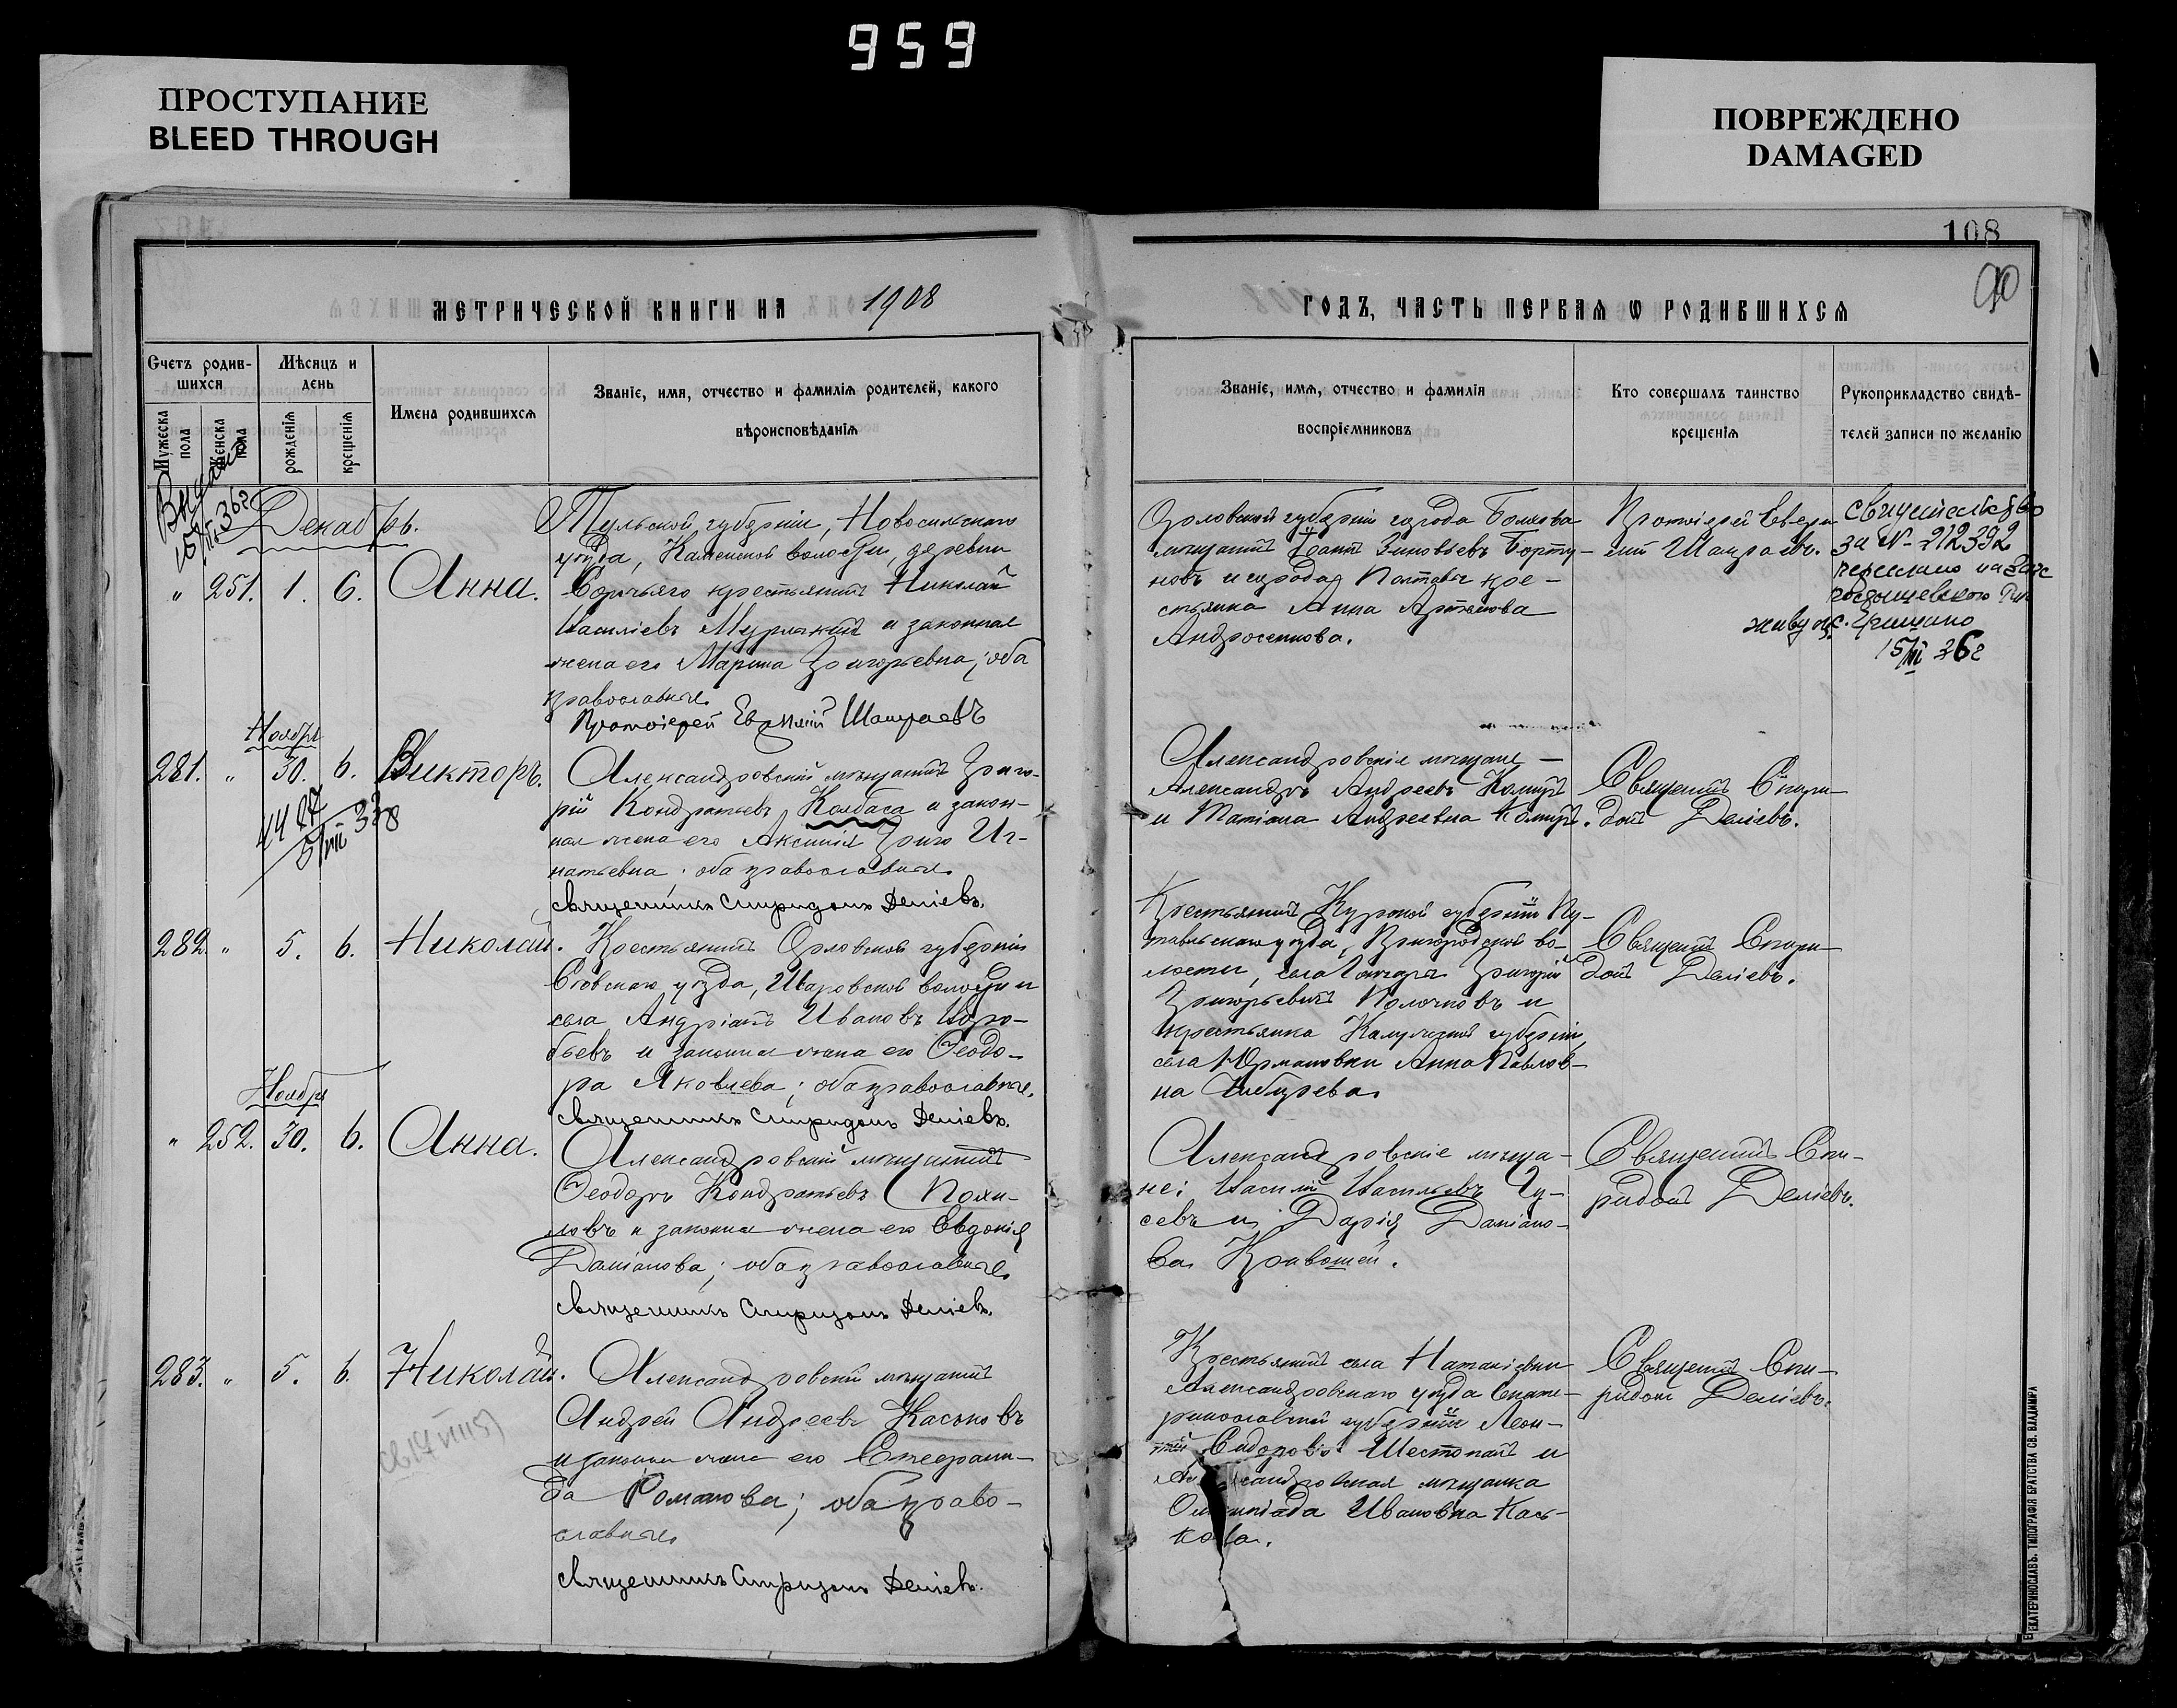 959
ПРОСТУПАНИЕ
BLEED THROUGH
ПОВРЕЖДЕНО
DAMAGED
108
90
МЕТРИЧЕСКОЙ КНИГИ НА 1908
ГОДЪ, ЧАСТЬ ПЕРВАЯ Ѡ РОДИВШИХСЯ
Счетъ родив-
шихся
Мѣсяцъ и
день
Имена родившихся
Званіе, имя, отчество и фамилія родителей, какого
вѣроисповѣданія
Мужеска пола
Женска пола
рожденія
крещенія
Званіе, имя, отчество и фамилія
воспріемниковъ
Кто совершалъ таинство
крещенія
Рукоприкладство свидѣ-
телей записи по желанію
Декабрь.
" 251. 1. 6. Анна.
Тульской губерніи, Новосильскаго
уѣзда, волости, деревни
крестьянинъ Николай
Василіевъ и законная
жена его Марина Григорьевна; оба
православные.
Протоіерей Евѳимій
Орловской губерніи города Болхова
мѣщанинъ Іоаннъ Зиновьевъ
новъ и города Полтавы кре-
стьянка Анна Артемова
Андросенкова.
Протоіерей
Свидетельство
за № 212392
переслано на
живу
15/III 36г
Ноября
281. " 30. 6. Викторъ.
Александровскій мѣщанинъ Григо-
рій Кондратьевъ Колбаса и закон-
ная жена его Аксинія Иг-
натьевна; оба православные.
Священникъ Спиридонъ Деліевъ.
Александровскіе мѣщане —
Александръ Андреевъ
и Татіана Андреевна
Священникъ Спири-
донъ Деліевъ.
282. " 5. 6. Николай.
Крестьянинъ Орловской губерніи
Сѣвскаго уѣзда, волости
села Андріанъ Ивановъ Воро-
бьевъ и законная жена его Ѳеодо-
ра Яковлева; оба православные.
Священникъ Спиридонъ Деліевъ.
Крестьянинъ Курской губерніи Пу-
тивльскаго уѣзда, Пригородской во-
лости, села Григорій
Григорьевичъ и
крестьянка Калужской губерніи
села Анна Павлов-
на
Священникъ Спири-
донъ Деліевъ.
Ноября
" 252. 30. 6. Анна.
Александровскій мѣщанинъ
Ѳеодоръ Кондратьевъ
ловъ и законная жена его Евдокія
Даміанова; оба православные.
Священникъ Спиридонъ Деліевъ.
Александровскіе мѣща-
не: Василій Васильевъ Гу-
севъ и Дарія Даміано-
ва
Священникъ Спи-
ридонъ Деліевъ.
283. " 5. 6. Николай.
Александровскій мѣщанинъ
Андрей Андреевъ Каськовъ
и законная жена его
да Романова; оба право-
славные.
Священникъ Спиридонъ Деліевъ.
Крестьянинъ села Наталіевки
Александровскаго уѣзда Екате-
ринославской губерніи Леон-
тій Сидоровъ и
Александровская мѣщанка
Олимпіада Ивановна Кась-
кова.
Священникъ Спи-
ридонъ Деліевъ.
ЕКАТЕРИНОСЛАВЪ. ТИПОГРАФІЯ БРАТСТВА СВ. ВЛАДИМІРА